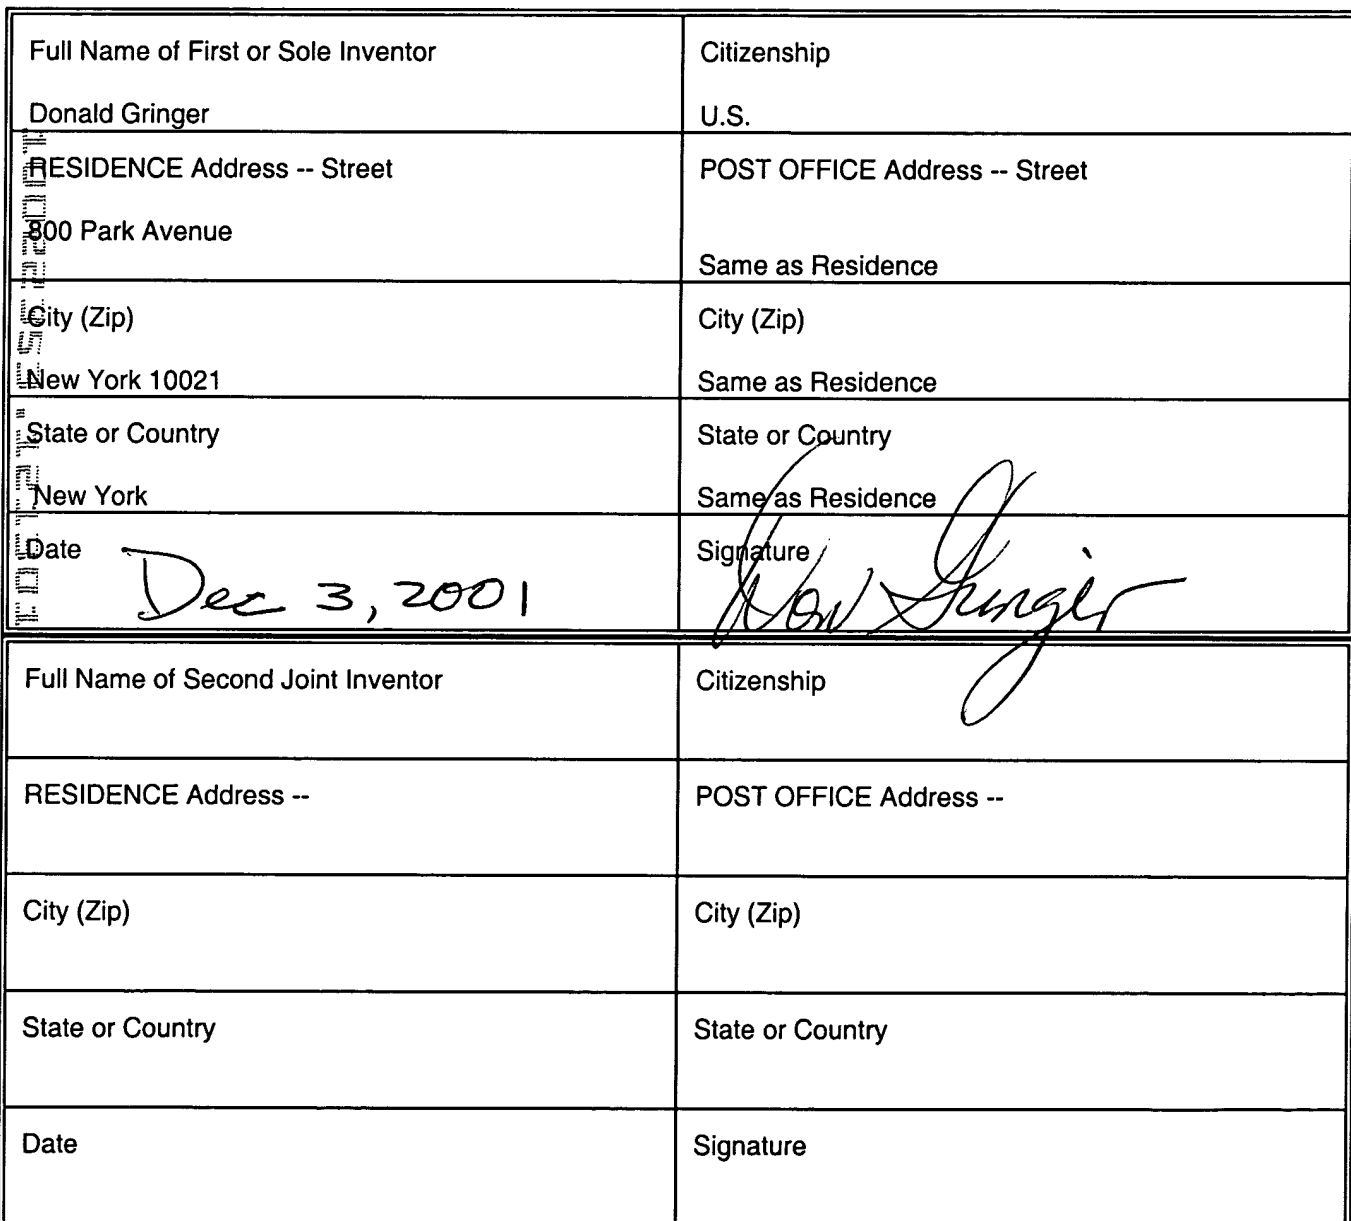 Full Name of First or Sole Inventor
Donald Gringer
Citizenship
U.S.
RESIDENCE Address -- Street
800 Park Avenue
POST OFFICE Address -- Street
Same as Residence
City (Zip)
New York 10021
City (Zip)
Same as Residence
State or Country
New York
State or Country
Same as Residence
Date
Dec 3, 2001
Signature
Don Gringer
Full Name of Second Joint Inventor
Citizenship
RESIDENCE Address --
POST OFFICE Address --
City (Zip)
City (Zip)
State or Country
State or Country
Date
Signature